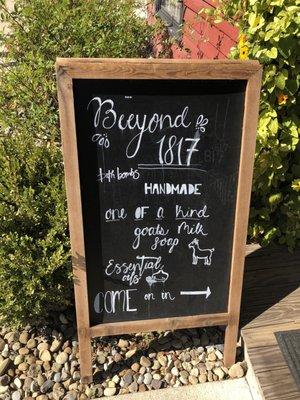 Beeyond
1817
bath bombs
HANDMADE
one OF a Kind
goats Milk
Soap
Essential
oils
COME on in →